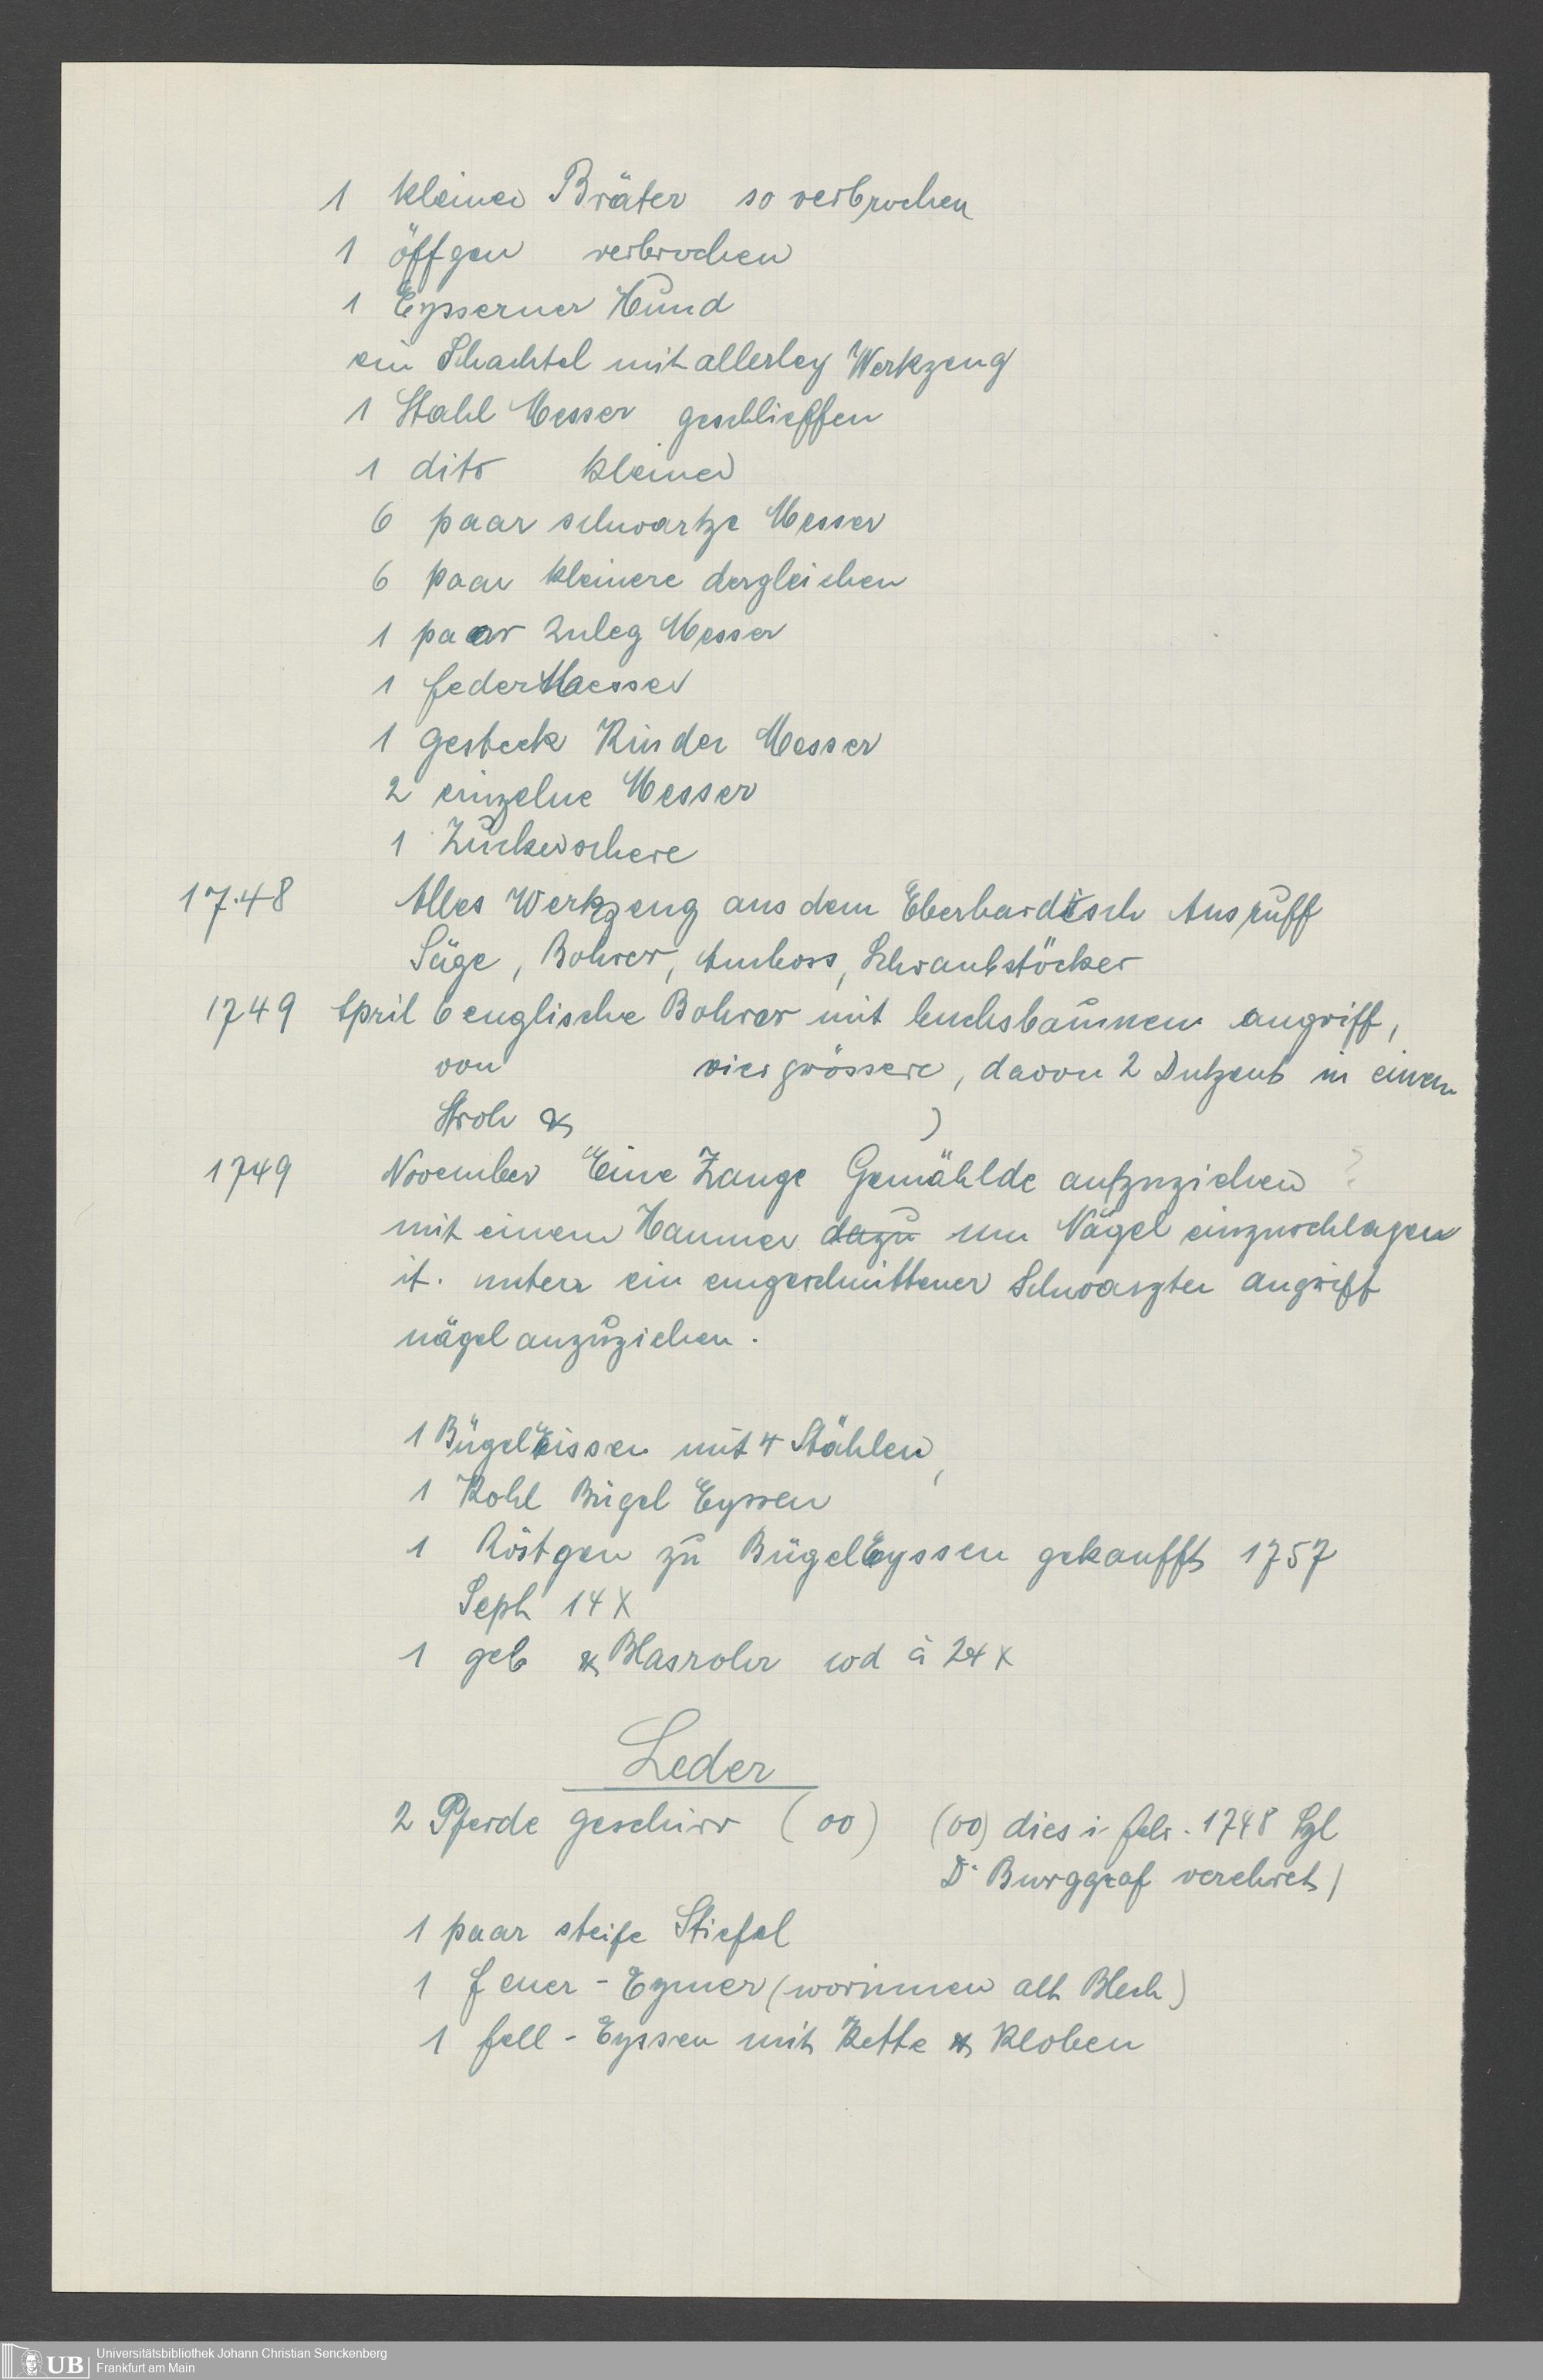 1 kleiner Bräter so verbrochen
1 öffgen verbrochen
1 Eysserner Hund
ein Schachtel mit allerley Werkzeug
1 Stahl Messer geschlieffen
1 dito kleiner
6 paar schwartze Messer
6 paar kleinere dergleichen
1 paar Zuleg Messer
1 federMesser
1 Gesteck Kinder Messer
2 einzelne Messer
1 Zuckerschere
17.48 Alles Werkzeug aus dem Eberhardisch Ausruff
Säge, Bohrer, Amboss, Schraubstöcker
1749 April 6 englische Bohrer mit buchsbaumen angriff,
von vier grössere, davon 2 Dutzent in einem
Stroh & )
1749 November Eine Zange Gemählde aufzuziehen ?
mit einem Hammer dazu um Nägel einzuschlagen
it. unten ein eingeschnittener Schwarzter angriff
nägel anzuziehen.
1 BügelEissen mit 4 Stählen,
1 Kohl Bügel Eyssen
1 Röstgen zu BügelEyssen gekaufft 1757
Sept 14 X
1 geb & Blasrohr à 24 X
Leder
2 Pferde geschirr (oo) (oo) dies i. febr. 1748
D. Burggraf verehret)
1 paar steife Stiefel
1 feuer - Eymer (worinnen alt Blech)
1 fell - Eyssen mit Kette & Kloben
Universitätsbibliothek Johann Christian Senckenberg
UB Frankfurt am Main